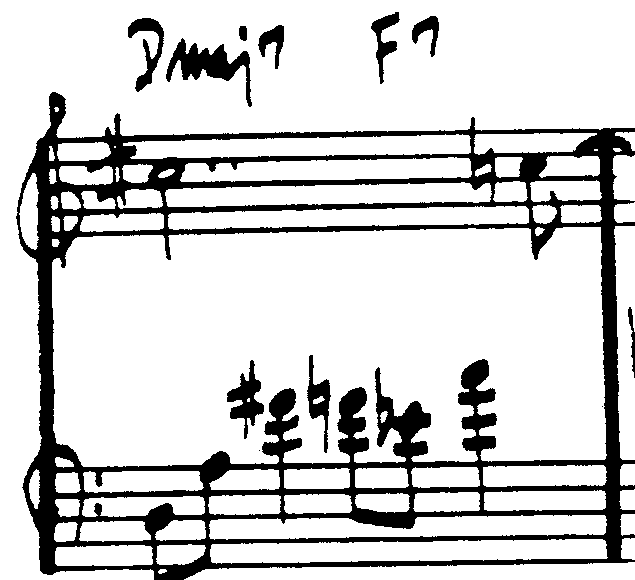 Dmaj7 F7